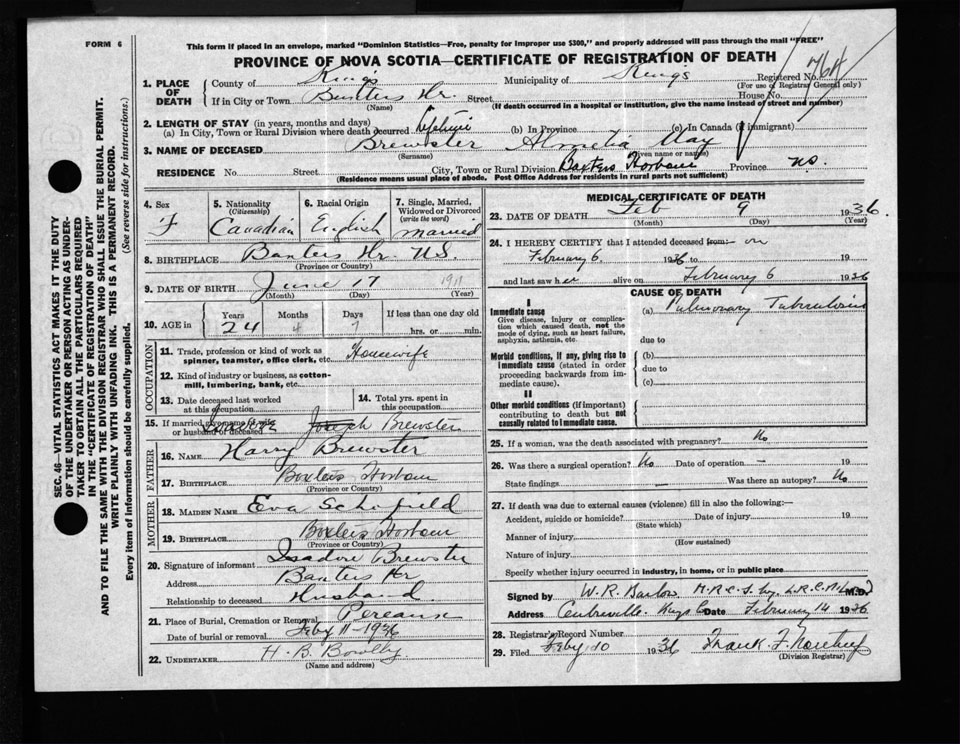 FORM 6
This form if placed in an envelope, marked "Dominion Statistics—Free, penalty for improper use $300," and properly addressed will pass through the mail "FREE"
PROVINCE OF NOVA SCOTIA—CERTIFICATE OF REGISTRATION OF DEATH
1. PLACE OF DEATH County of Kings Municipality of Kings Registered No. 764
(For use of Registrar General only)
If in City or Town Baxters Hr. Street House No.
(Name) (If death occurred in a hospital or institution, give the name instead of street and number)
2. LENGTH OF STAY (in years, months and days)
(a) In City, Town or Rural Division where death occurred Lifetime (b) In Province (c) In Canada (if immigrant)
3. NAME OF DECEASED Brewster Almetia May
(Surname) (Given name or names)
RESIDENCE No. Street City, Town or Rural Division Baxters Harbour Province N.S.
(Residence means usual place of abode. Post Office Address for residents in rural parts not sufficient)
4. Sex F
5. Nationality (Citizenship) Canadian
6. Racial Origin English
7. Single, Married, Widowed or Divorced (write the word) Married
8. BIRTHPLACE Baxters Hr. N.S.
(Province or Country)
9. DATE OF BIRTH June 17 1911
(Month) (Day) (Year)
10. AGE in Years Months Days If less than one day old
24 4 7 hrs. or min.
OCCUPATION
11. Trade, profession or kind of work as spinner, teamster, office clerk, etc. Housewife
12. Kind of industry or business, as cotton-mill, lumbering, bank, etc.
13. Date deceased last worked at this occupation
14. Total yrs. spent in this occupation
15. If married give name of wife or husband of deceased Joseph Brewster
FATHER
16. NAME Harry Brewster
17. BIRTHPLACE Baxters Harbour
(Province or Country)
MOTHER
18. MAIDEN NAME Eva Schofield
19. BIRTHPLACE Baxters Harbour
(Province or Country)
20. Signature of informant Isadore Brewster
Address Baxters Hr
Relationship to deceased Husband
21. Place of Burial, Cremation or Removal Pereaux
Date of burial or removal Feby 11-1936
22. UNDERTAKER H. B. Bowlby
(Name and address)
MEDICAL CERTIFICATE OF DEATH
23. DATE OF DEATH Feb 9 1936.
(Month) (Day) (Year)
24. I HEREBY CERTIFY that I attended deceased from:- on
February 6 1936 to 19
and last saw her alive on February 6 1936
CAUSE OF DEATH
I
Immediate cause
Give disease, injury or complication which caused death, not the mode of dying, such as heart failure, asphyxia, asthenia, etc.
(a) Pulmonary Tuberculosis
due to
Morbid conditions, if any, giving rise to immediate cause (stated in order proceeding backwards from immediate cause).
(b)
due to
(c)
II
Other morbid conditions (if important) contributing to death but not causally related to immediate cause.
25. If a woman, was the death associated with pregnancy? No
26. Was there a surgical operation? No Date of operation — 19
State findings — Was there an autopsy? No
27. If death was due to external causes (violence) fill in also the following:—
Accident, suicide or homicide? Date of injury 19
(State which)
Manner of injury
(How sustained)
Nature of injury
Specify whether injury occurred in industry, in home, or in public place
Signed by W. R. Barlow M.R.C.S. M.D.
Address Centreville Kings Co Date February 14 1936
28. Registrar's Record Number
29. Filed Feby 10 1936 Frank F.
(Division Registrar)
SEC. 46—VITAL STATISTICS ACT MAKES IT THE DUTY
OF THE UNDERTAKER OR PERSON ACTING AS UNDER-
TAKER TO OBTAIN ALL THE PARTICULARS REQUIRED
IN THE "CERTIFICATE OF REGISTRATION OF DEATH"
AND TO FILE THE SAME WITH THE DIVISION REGISTRAR WHO SHALL ISSUE THE BURIAL PERMIT.
WRITE PLAINLY WITH UNFADING INK. THIS IS A PERMANENT RECORD.
Every item of information should be carefully supplied. (See reverse side for instructions.)